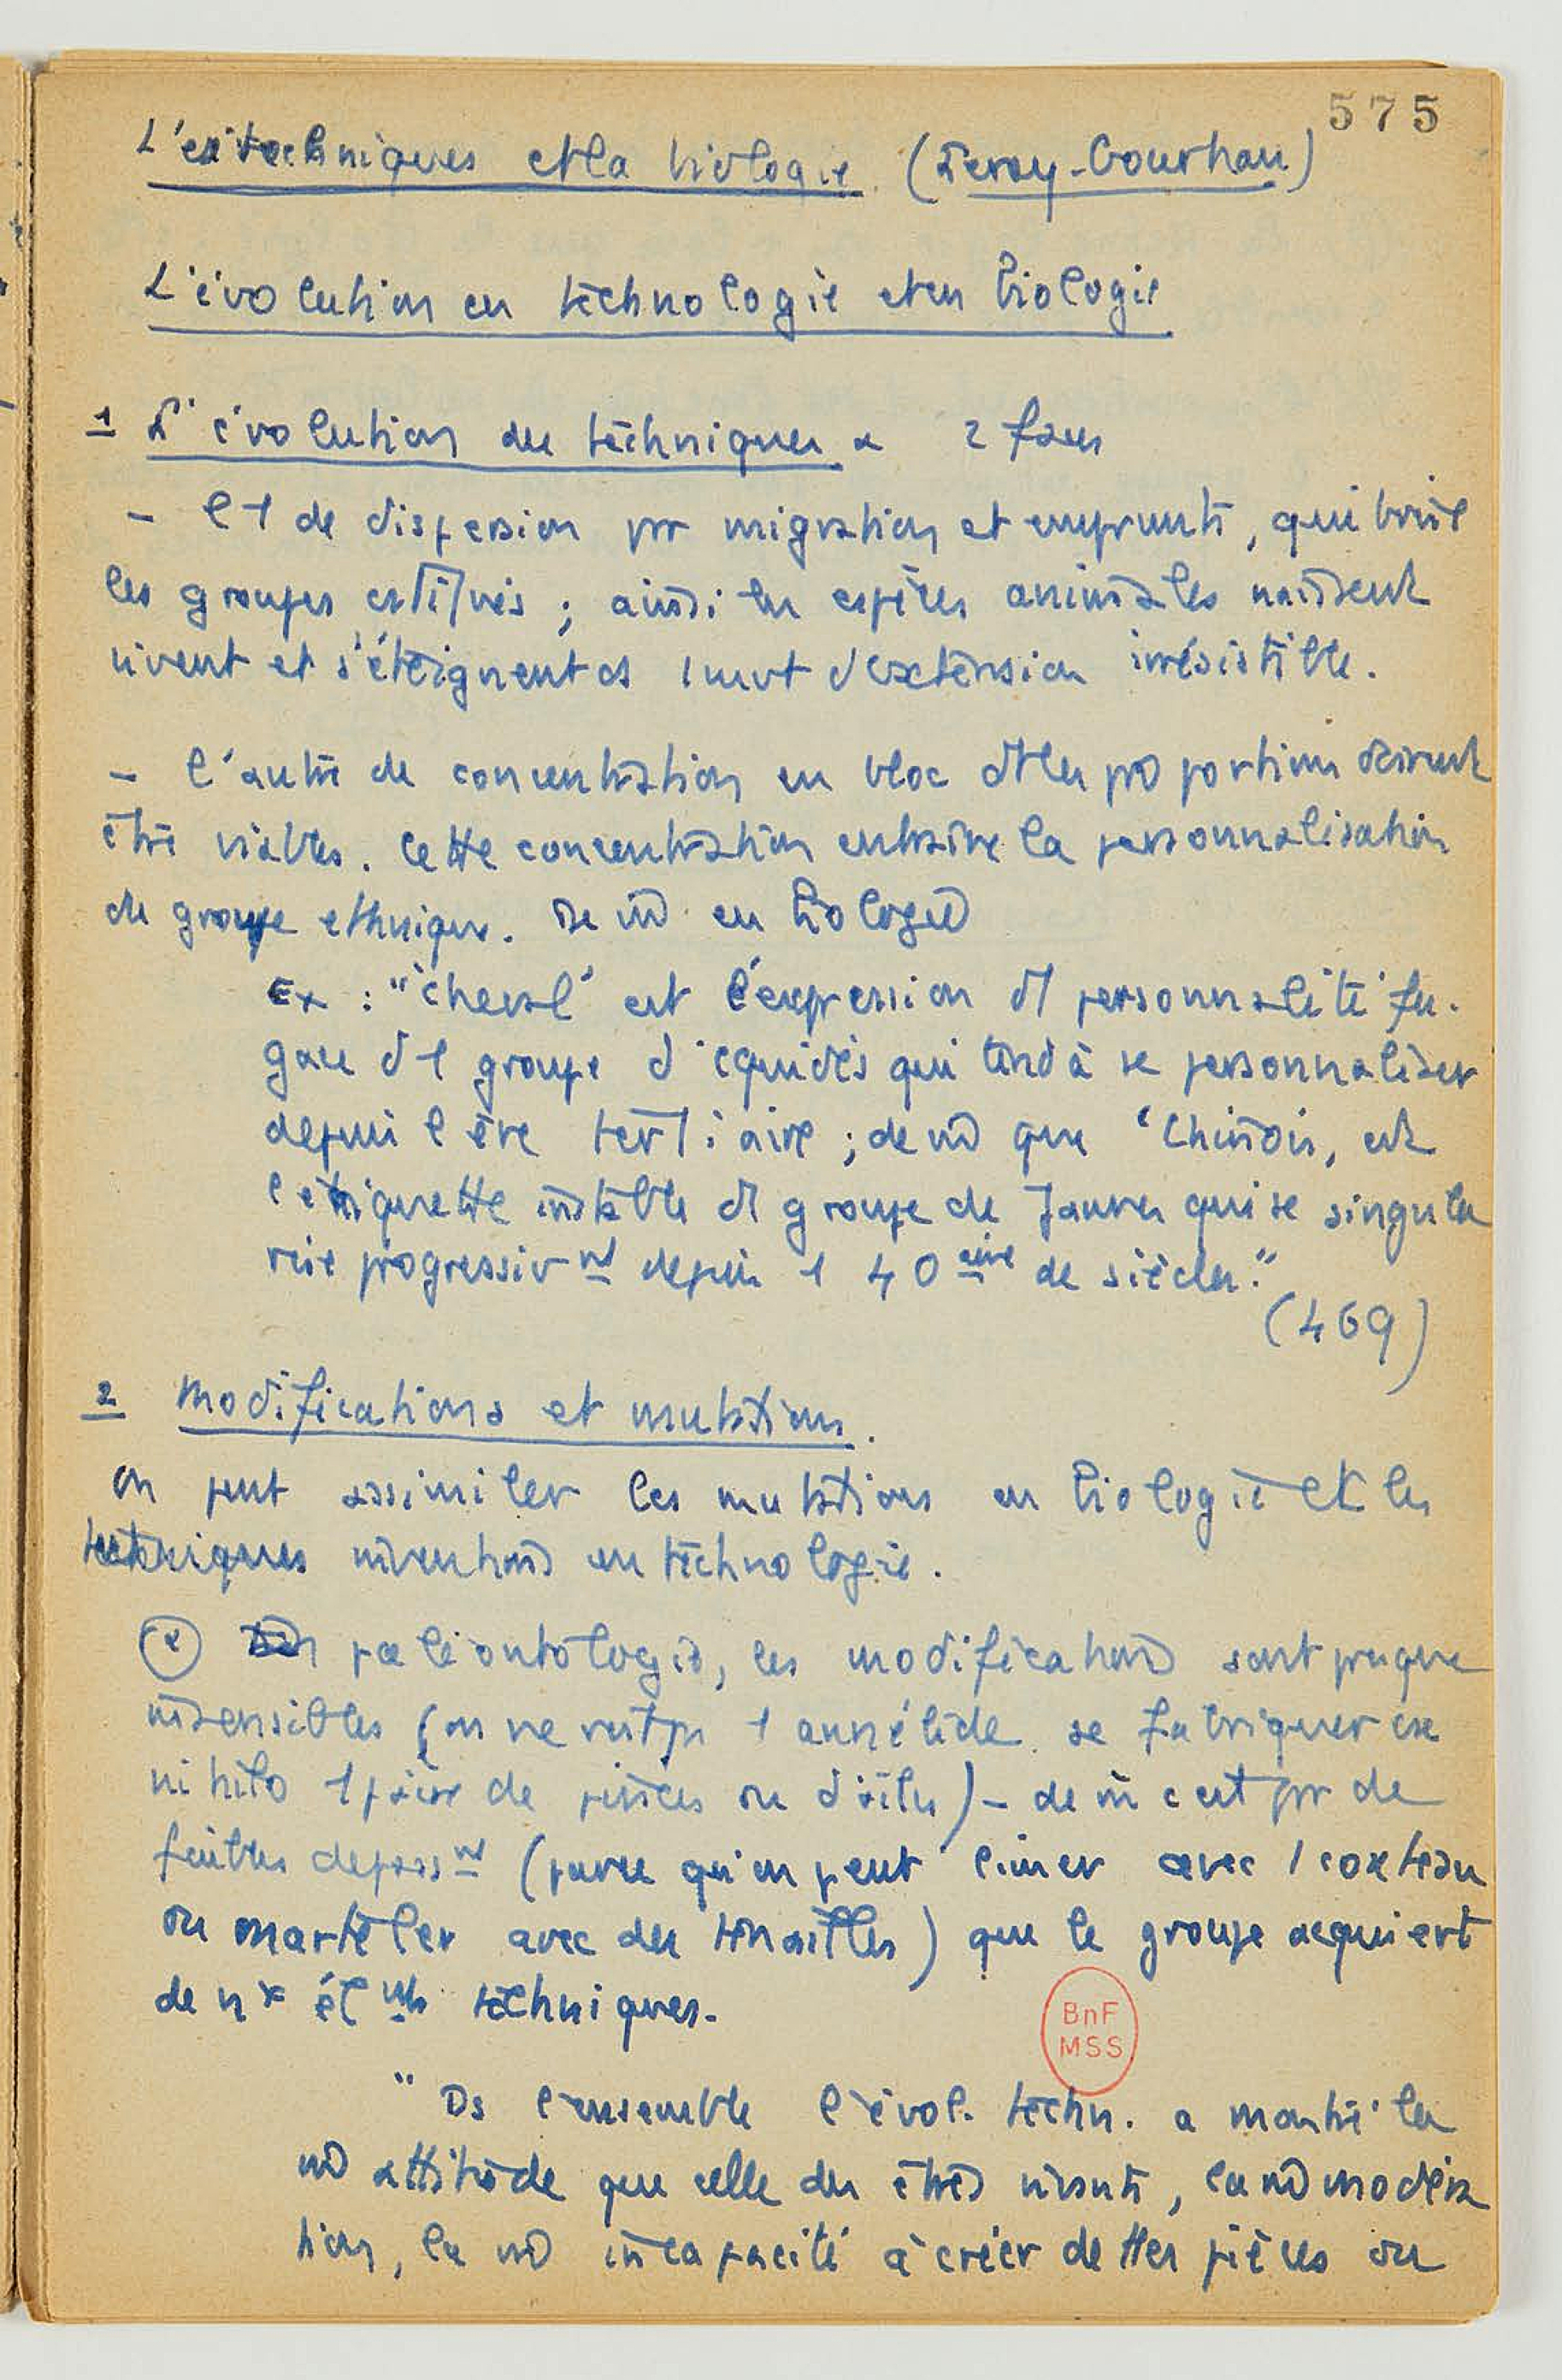 575
Les techniques et la biologie (Leroy-Gourhan)
L'évolution en technologie et en biologie
1 L'évolution des techniques a 2 faces
- l'1 de dispersion pr migration et emprunts, qui brise
les groupes ; ainsi les espèces animales naissent
vivent et s'éteignent ds 1 mvt d'extension irrésistible.
- l'autre de concentration en bloc dt les proportions doivent
être viables. Cette concentration entraîne la personnalisation
du groupe ethnique. De m en biologie
Ex : "'cheval' est l'expression d'1 personnalité fu-
gace d'1 groupe d'équidés qui tend à se personnaliser
depuis l'ère tertiaire ; de m que 'Chinois, est
l'étiquette instable d'1 groupe de Jaunes qui se singula
rise progressivmt depuis 1 40aine de siècles."
(469)
2 Modifications et mutations.
On peut assimiler les mutations en biologie et les
techniques inventions en technologie.
(α) paléontologie, les modifications sont presque
insensibles (on ne voit ps 1 annélide se fabriquer ex
nihilo 1 paire de pinces ou d'ailes) - de m c'est pr de
faibles depassmt (parce qu'on peut limer avec 1 couteau
ou marteler avec des tenailles) que le groupe acquiert
de nx élmts techniques.
BnF
MSS
"Ds l'ensemble l'évol. techn. a montré la
m attitude que celle des êtres vivants, la m modéra
tion, la m incapacité à créer de ttes pièces ou